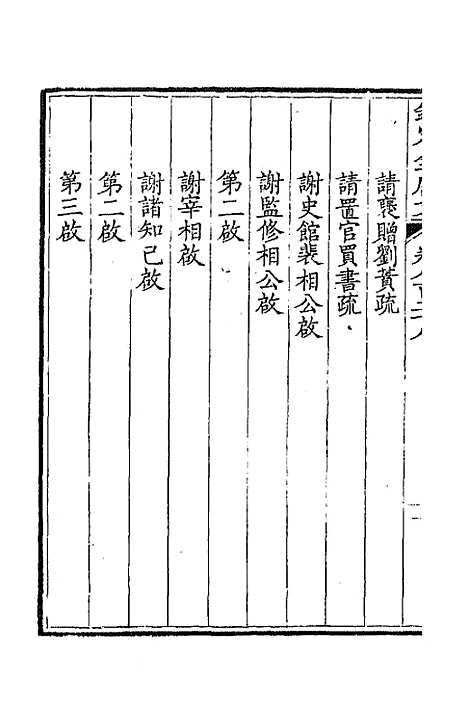 請襃贈劉蕡疏
請置官買書疏
謝史館裴相公啟
謝監修相公啟
第二啟
謝宰相啟
謝諸知己啟
第二啟
第三啟